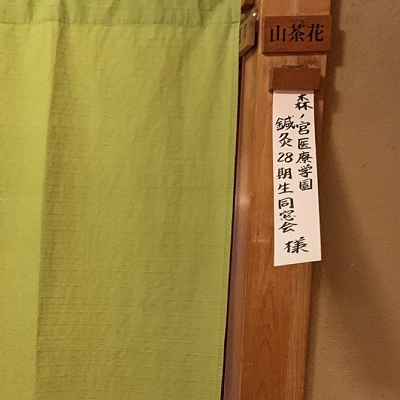 山茶花
森ノ宮医療学園
鍼灸28期生同窓会
様